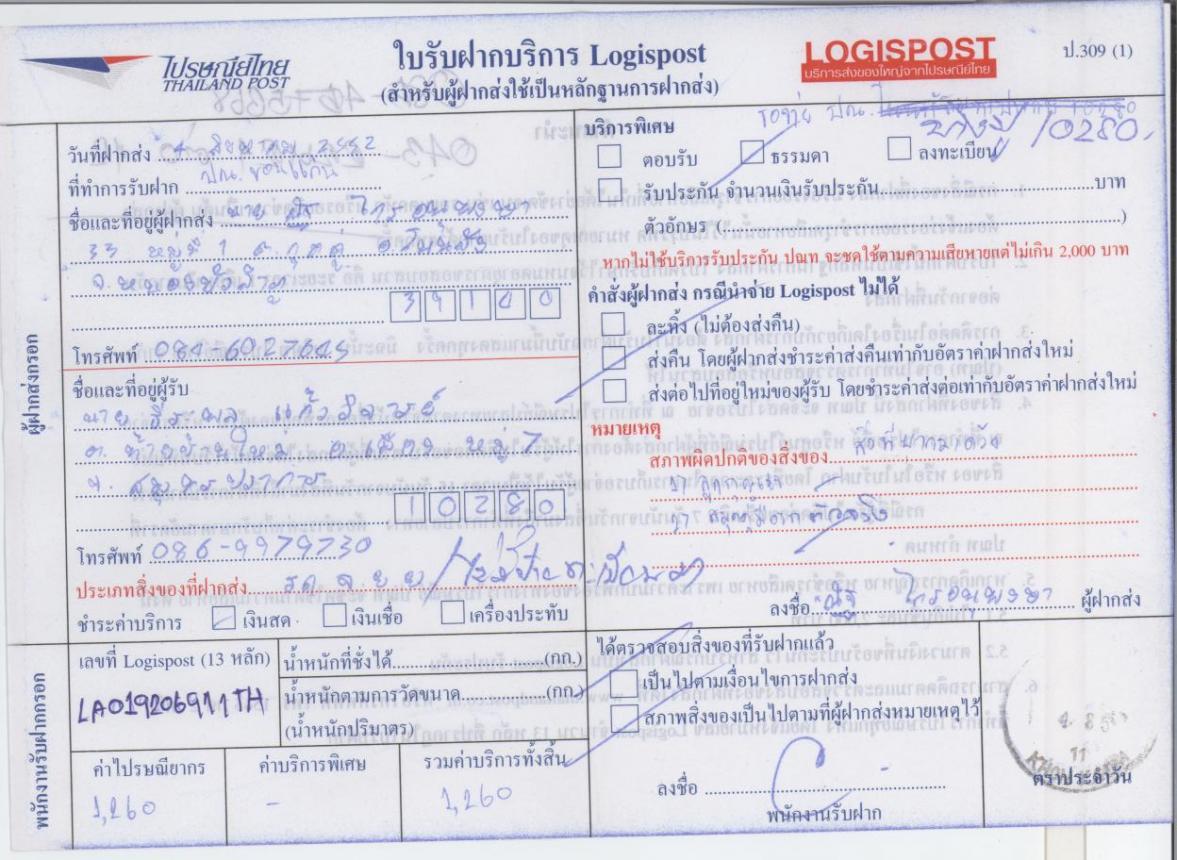 ไปรษณีย์ไทย
THAILAND POST
ใบรับฝากบริการ Logispost
(สำหรับผู้ฝากส่งใช้เป็นหลักฐานการฝากส่ง)
LOGISPOST
บริการส่งของใหญ่จากไปรษณีย์ไทย
ป.309 (1)
ผู้ฝากส่งกรอก
วันที่ฝากส่ง 4 สิงหาคม 2552
ที่ทำการรับฝาก ปณ. ขอนแก่น
ชื่อและที่อยู่ผู้ฝากส่ง นาย
33 หมู่ที่ 1 ต. กุดดู่ อ. โนนสัง
จ. หนองบัวลำภู
39140
โทรศัพท์ 084-6027645
ชื่อและที่อยู่ผู้รับ
นาย ธีระพล แก้ว
ต. ท้ายบ้านใหม่ อ. เมือง หมู่ 7
จ. สมุทรปราการ
10280
โทรศัพท์ 086-9979730
ประเภทสิ่งของที่ฝากส่ง รถ จ ย ย /
ชำระค่าบริการ เงินสด เงินเชื่อ เครื่องประทับ
บริการพิเศษ
ปณ. บางปู 10280
ตอบรับ ธรรมดา ลงทะเบียน
รับประกัน จำนวนเงินรับประกัน บาท
ตัวอักษร ( )
หากไม่ใช้บริการรับประกัน ปณท จะชดใช้ตามความเสียหายแต่ไม่เกิน 2,000 บาท
คำสั่งผู้ฝากส่ง กรณีนำจ่าย Logispost ไม่ได้
ละทิ้ง (ไม่ต้องส่งคืน)
ส่งคืน โดยผู้ฝากส่งชำระค่าส่งคืนเท่ากับอัตราค่าฝากส่งใหม่
ส่งต่อไปที่อยู่ใหม่ของผู้รับ โดยชำระค่าส่งต่อเท่ากับอัตราค่าฝากส่งใหม่
หมายเหตุ
สภาพผิดปกติของสิ่งของ
ลงชื่อ ผู้ฝากส่ง
พนักงานรับฝากกรอก
เลขที่ Logispost (13 หลัก)
LA019206911TH
น้ำหนักที่ชั่งได้ (กก.)
น้ำหนักตามการวัดขนาด (กก.)
(น้ำหนักปริมาตร)
ค่าไปรษณียากร
1,260
ค่าบริการพิเศษ
-
รวมค่าบริการทั้งสิ้น
1,260
ได้ตรวจสอบสิ่งของที่รับฝากแล้ว
เป็นไปตามเงื่อนไขการฝากส่ง
สภาพสิ่งของเป็นไปตามที่ผู้ฝากส่งหมายเหตุไว้
ลงชื่อ
พนักงานรับฝาก
11
ตราประจำวัน